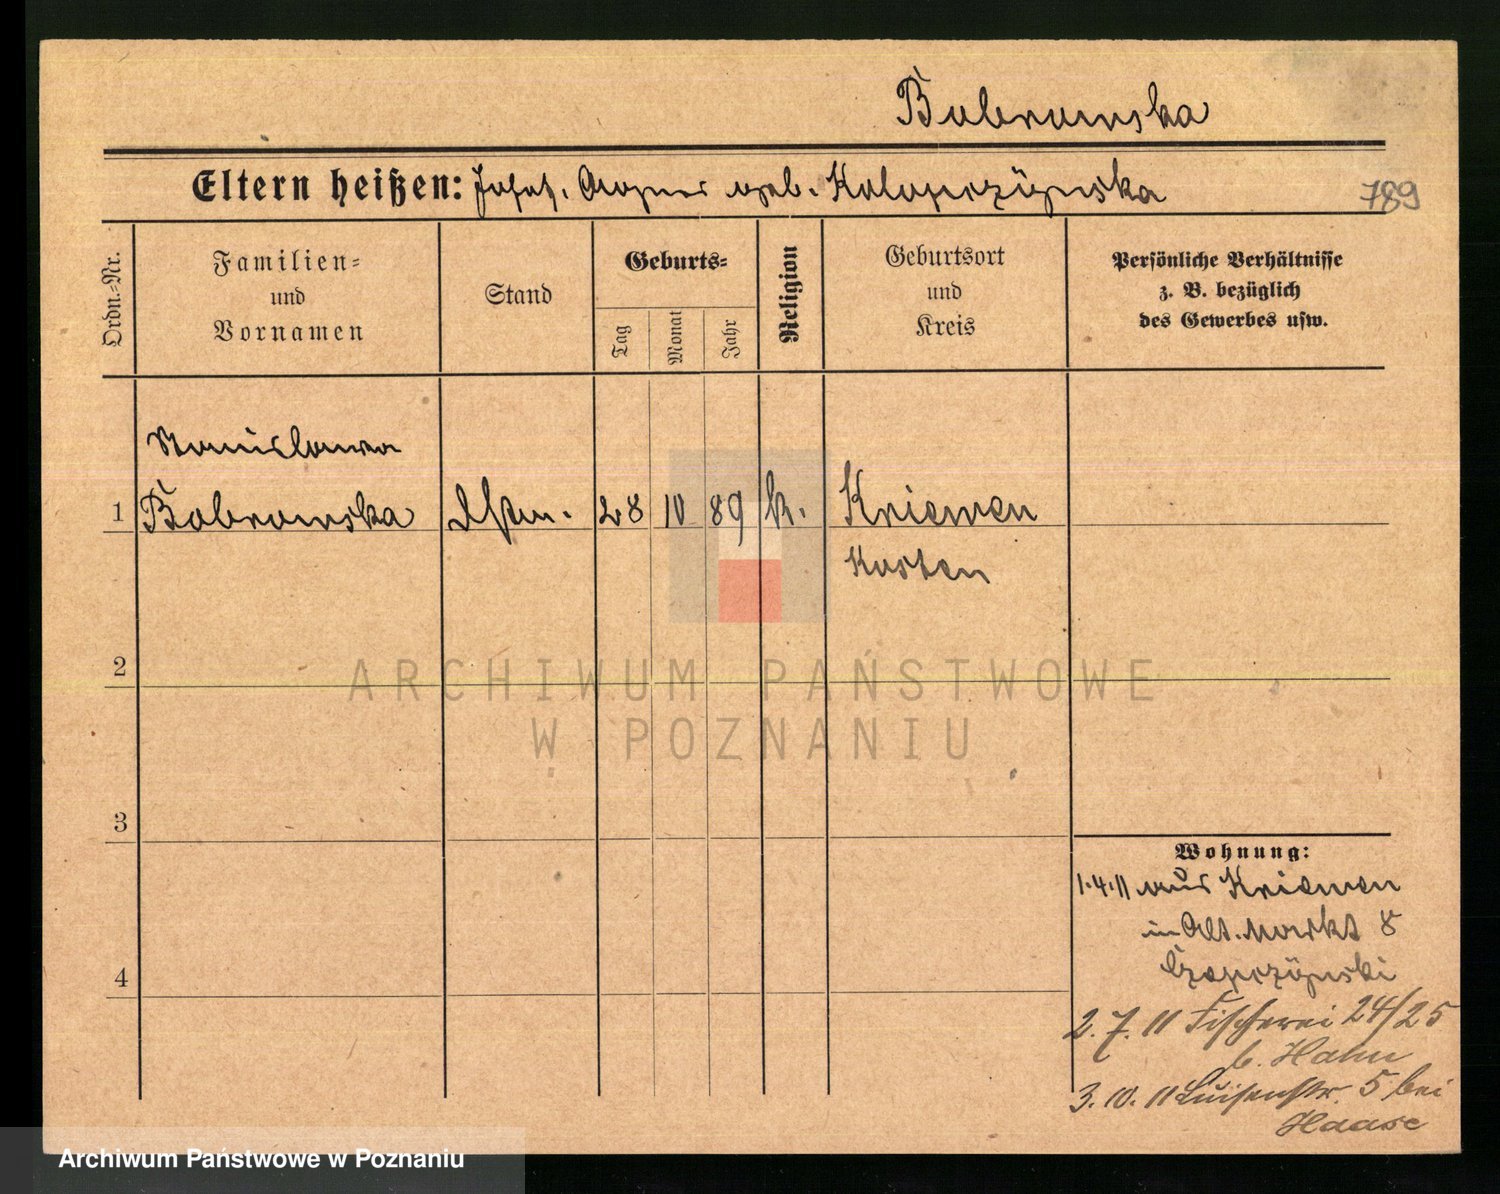 Bobrowska
Eltern heißen: Josef, Agnes geb. Kaloprzÿnska
789
Ordn.-Nr.
Familien-
und
Vornamen
Stand
Geburts-
Tag
Monat
Jahr
Religion
Geburtsort
und
Kreis
Persönliche Verhältnisse
z. B. bezüglich
des Gewerbes usw.
Stanislawa
1 Bobrowska 28 10 89 k. Kriewen
Kosten
2
ARCHIWUM PAŃSTWOWE
W POZNANIU
3
Wohnung:
1.4.11 aus Kriewen
in Alt. Markt 8
4
2.7.11 Fischerei 24/25
b. Hahn
3.10.11 Luisenstr. 5 bei
Haase
Archiwum Państwowe w Poznaniu